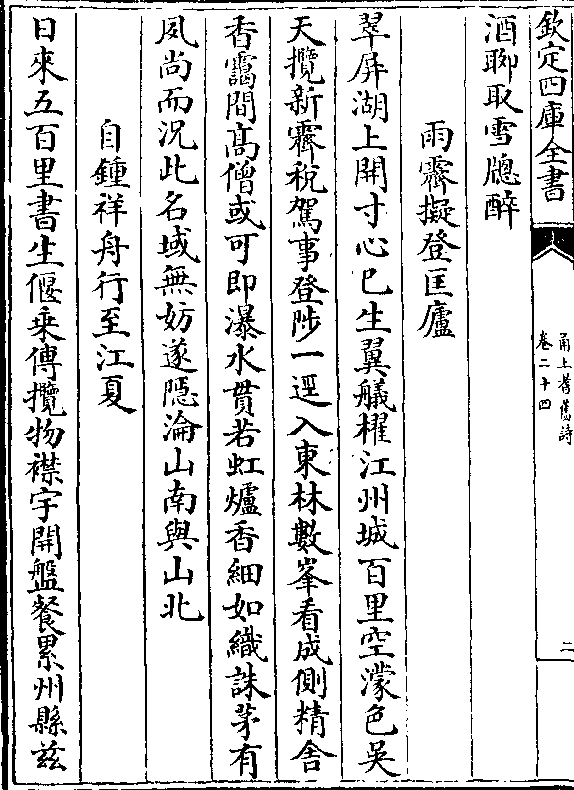 欽定四庫全書
甬上耆舊詩
卷二十四
二
酒聊取雪牕醉
雨霽擬登匡廬
翠屏湖上開寸心已生翼艤櫂江州城百里空濛色吳
天攬新霽稅駕事登陟一逕入東林數峯看成側精舍
香靄間髙僧或可即瀑水貫若虹爐香細如織誅茅有
夙尚而況此名域無妨遂隠淪山南與山北
自鍾祥舟行至江夏
日來五百里書生偃乗傳攬物襟宇開盤餐累州縣兹